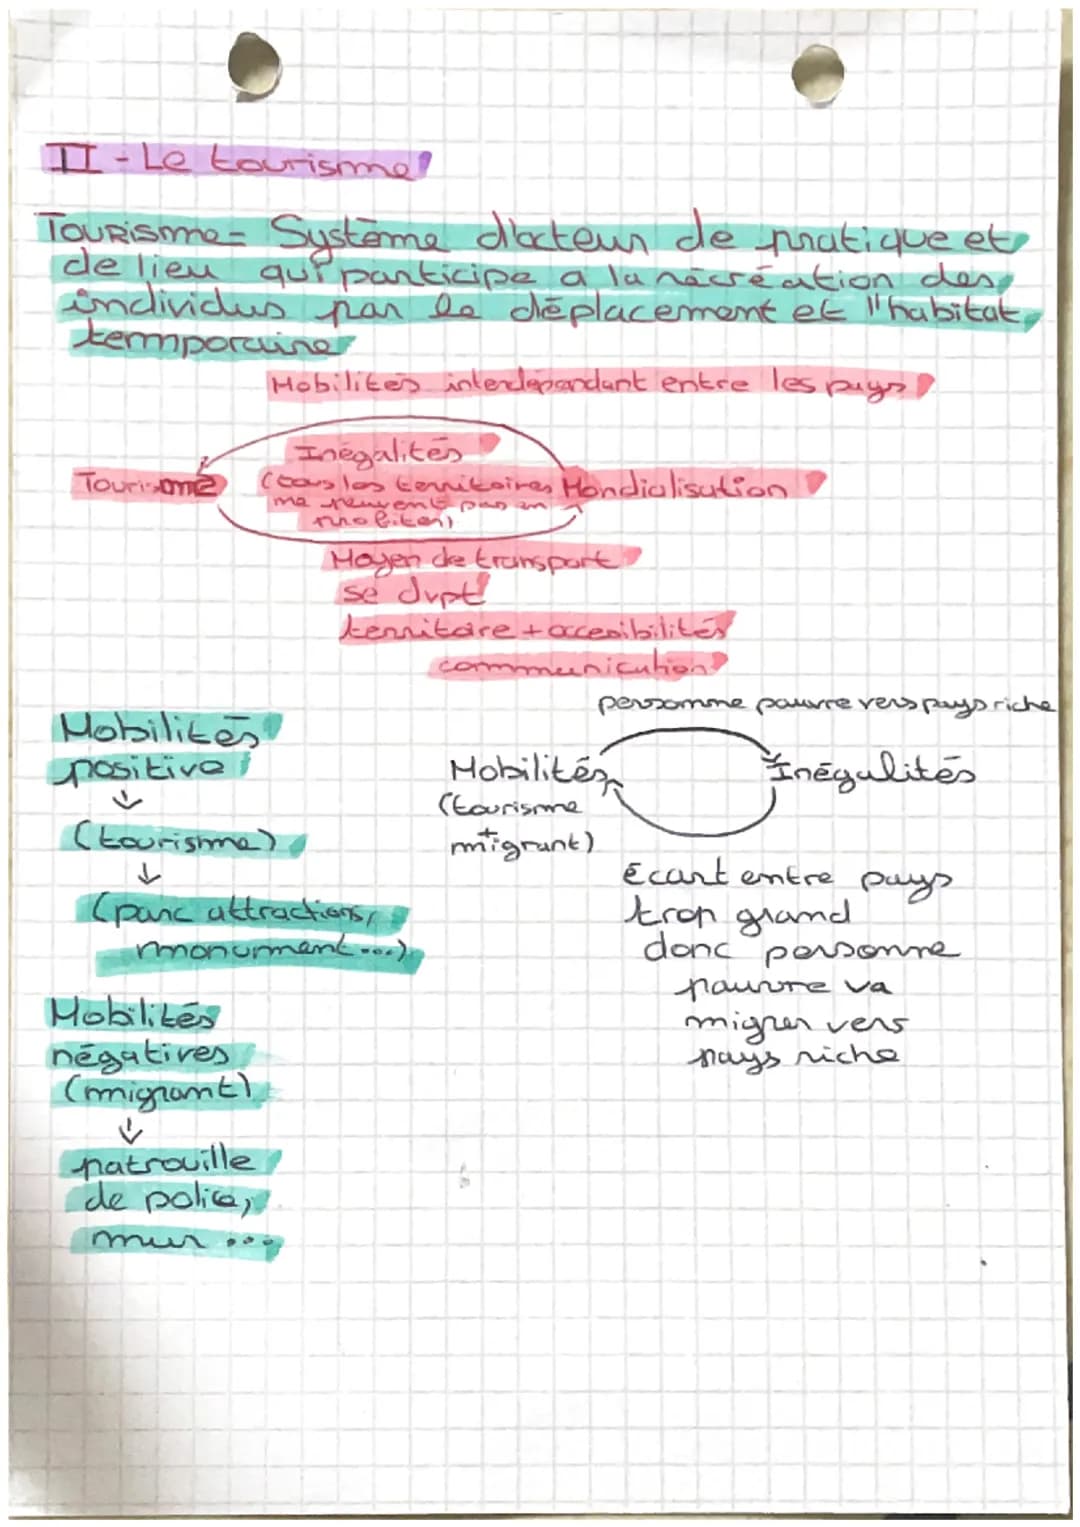 II - Le tourisme
Tourisme = Système d'acteur de pratique et
de lieu qui participe a la récréation des
individus par le déplacement et l'habitat
temporaire
Mobilités interdépendant entre les pays
Inégalités
Tourisme (tous les territoires Mondialisation
ne peuvent pas en
profiter)
Moyen de transport
se dvpt
territoire + accesibilités
communication
personne pauvre vers pays riche
Mobilités
positive
Mobilités Inégalités
(tourisme
(tourisme)
migrant)
+
Écart entre pays
trop grand
(parc attractions,
monument...)
donc personne
pauvre va
Mobilités
migrer vers
négatives
pays riche
(migrant)
patrouille
de police,
mur ...